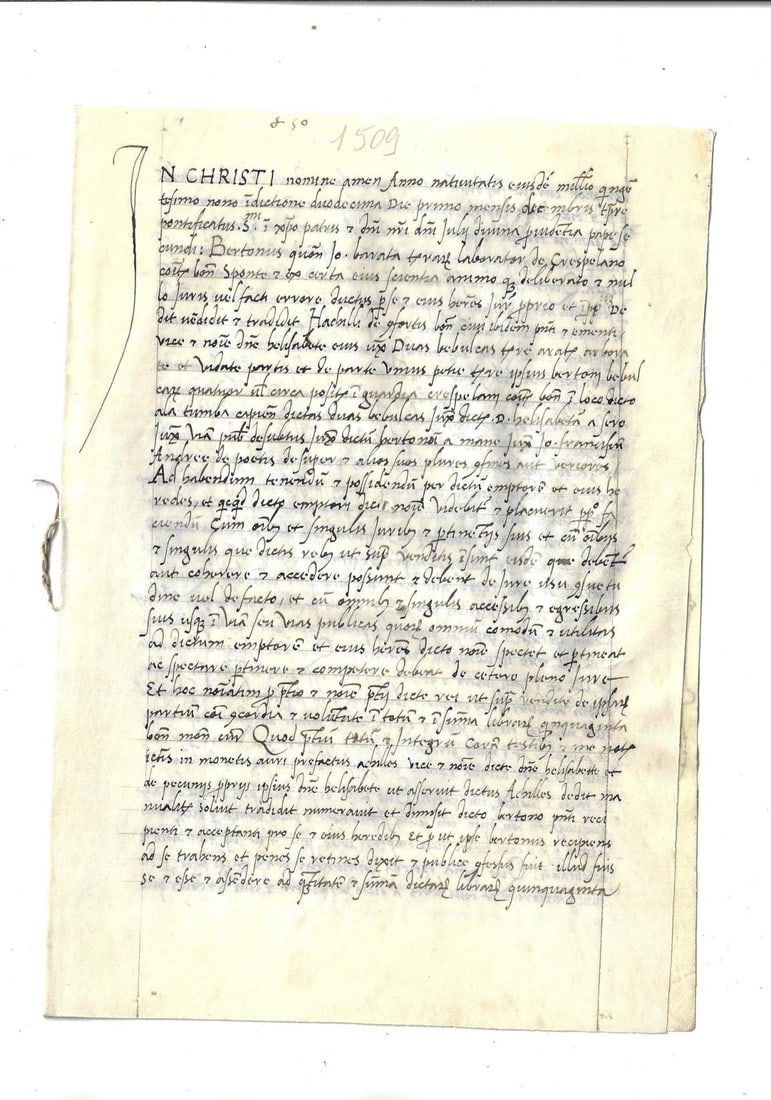 & 50
1509
IN CHRISTI nomine amen Anno nativitatis eiusdē mill̄io q̄ngē
tesimo nono īdictione duodecima Die primo mensis decembris tp̄re
pontificatus S.mi ī xp̄o patris & dn̄i nr̄i dn̄i Julij divina p̄videtia pape se
cundi: Bertonus quon̄ Jo. barata terraꝝ laborator de Crespelano
comit̄ bon̄ Sponte & ex certa eius scientia animo qꝫ deliberato & nul
lo Juris vel facti errore ductus p̄ se & eius hered̄ Jur̄ p̄prio et De
dit vēdidit & tradidit Hachilli de ꝯfortis bon̄ civi ibidem pn̄ti & ementi
vice & noīe dn̄e helisabete eius ux̄ Duas bebulcas terre arat̄ arbora
te et vidate partis et de parte unius petie terre ipsius bertoni bebul
caꝝ quatuor vl̄ circa posit̄ ī guardia crespelani comit̄ bon̄ ī loco dicto
ala tumba capien̄ dictas duas bebulcas Jux̄ dict̄ D. helisabetā a sero
Jux̄ viā publ̄ desubtus Jux̄ dictū bertonū a mane Jux̄ Jo. franciscū
Andree de poetis desuper & alios suos plures ꝯfines aut veriores
Ad habendum tenendū & possidendū per dictū emptorē et eius he
redes, et qcqd dicto emptori dicto noīe videbit̄ & placuerit ppo fa
ciendū Cum oīb et singulis Juribꝫ & ptinetijs suis et cū oībus
& singulis que dictis rebꝫ ut supᵃ venditis īsunt eisdē que debent
aut coherere & accedere possunt & debent de iure usu ꝯsuetu
dine vel de facto, et cū omnibꝫ & singulis accessibꝫ & egressibus
suis usqꝫ ī viā seu vias publicas quoꝝ omniū comodū & utilitas
ad dictum emptorē et eius hered̄ dicto noīe spectet et ptineat
ac spectare ptinere & competere debeat de cetero pleno Jure
Et hoc noīatim p p̄tio & noīe p̄tij dicte rei ut supᵃ vendite de ipsaꝝ
partium coī ꝯcordia & volūtate ī totū & ī sūma libraꝝ qinquaginta
bon̄ mon̄ curr̄ Quod p̄tiū totū & Integrū Corā testibꝫ & me notᵒ
ictis in monetis auri prefactus achilles vice & noīe dicte dn̄e helisabette et
de pecunijs pprijs ipsius dn̄e helisabete ut asseruit dictus Achilles dedit ma
nualit̄ solvit tradidit numeravit et dimisit dicto bertono pn̄ti reci
pienti & acceptanti pro se & eius heredibꝫ Et p ut ipse bertonus recipiens
ad se trahens et penes se retines dixit & publice ꝯfesus fuit illud fuis
se & esse & ascēdere ad q̄titatē & sūmā dictaꝝ libraꝝ quinquaginta